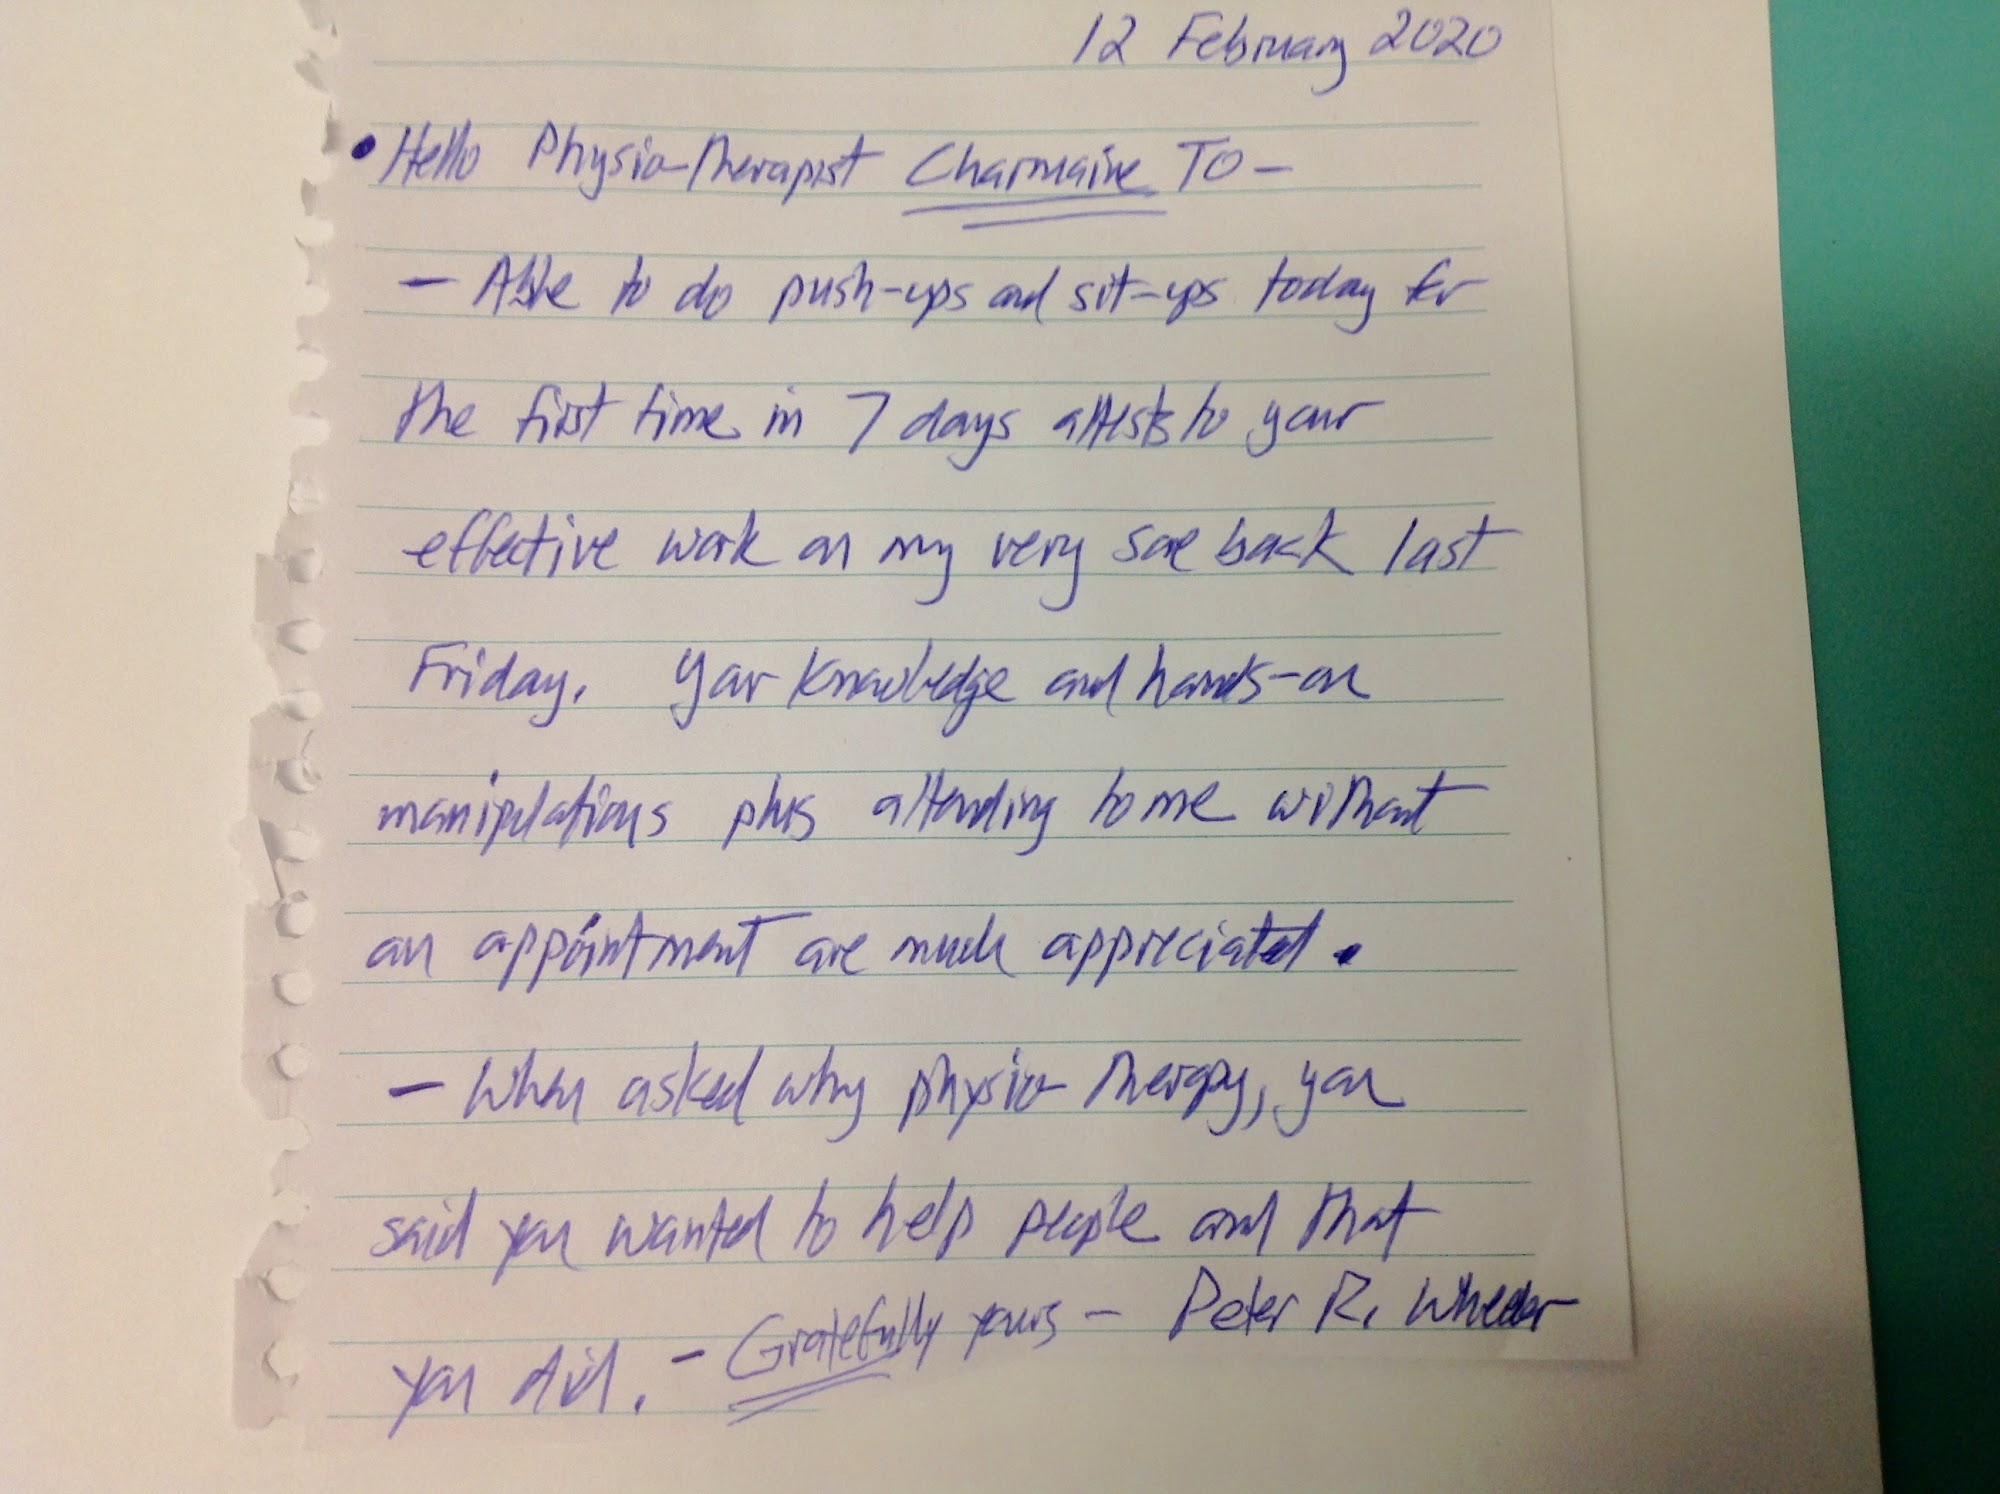 12 February 2020
• Hello Physio-Therapist Charmaine To -
- Able to do push-ups and sit-ups today for
the first time in 7 days attests to your
effective work on my very sore back last
Friday. Your knowledge and hands-on
manipulations plus attending to me without
an appointment are much appreciated.
- When asked why physio-therapy, you
said you wanted to help people and that
you did. - Gratefully yours - Peter R. Wheeler